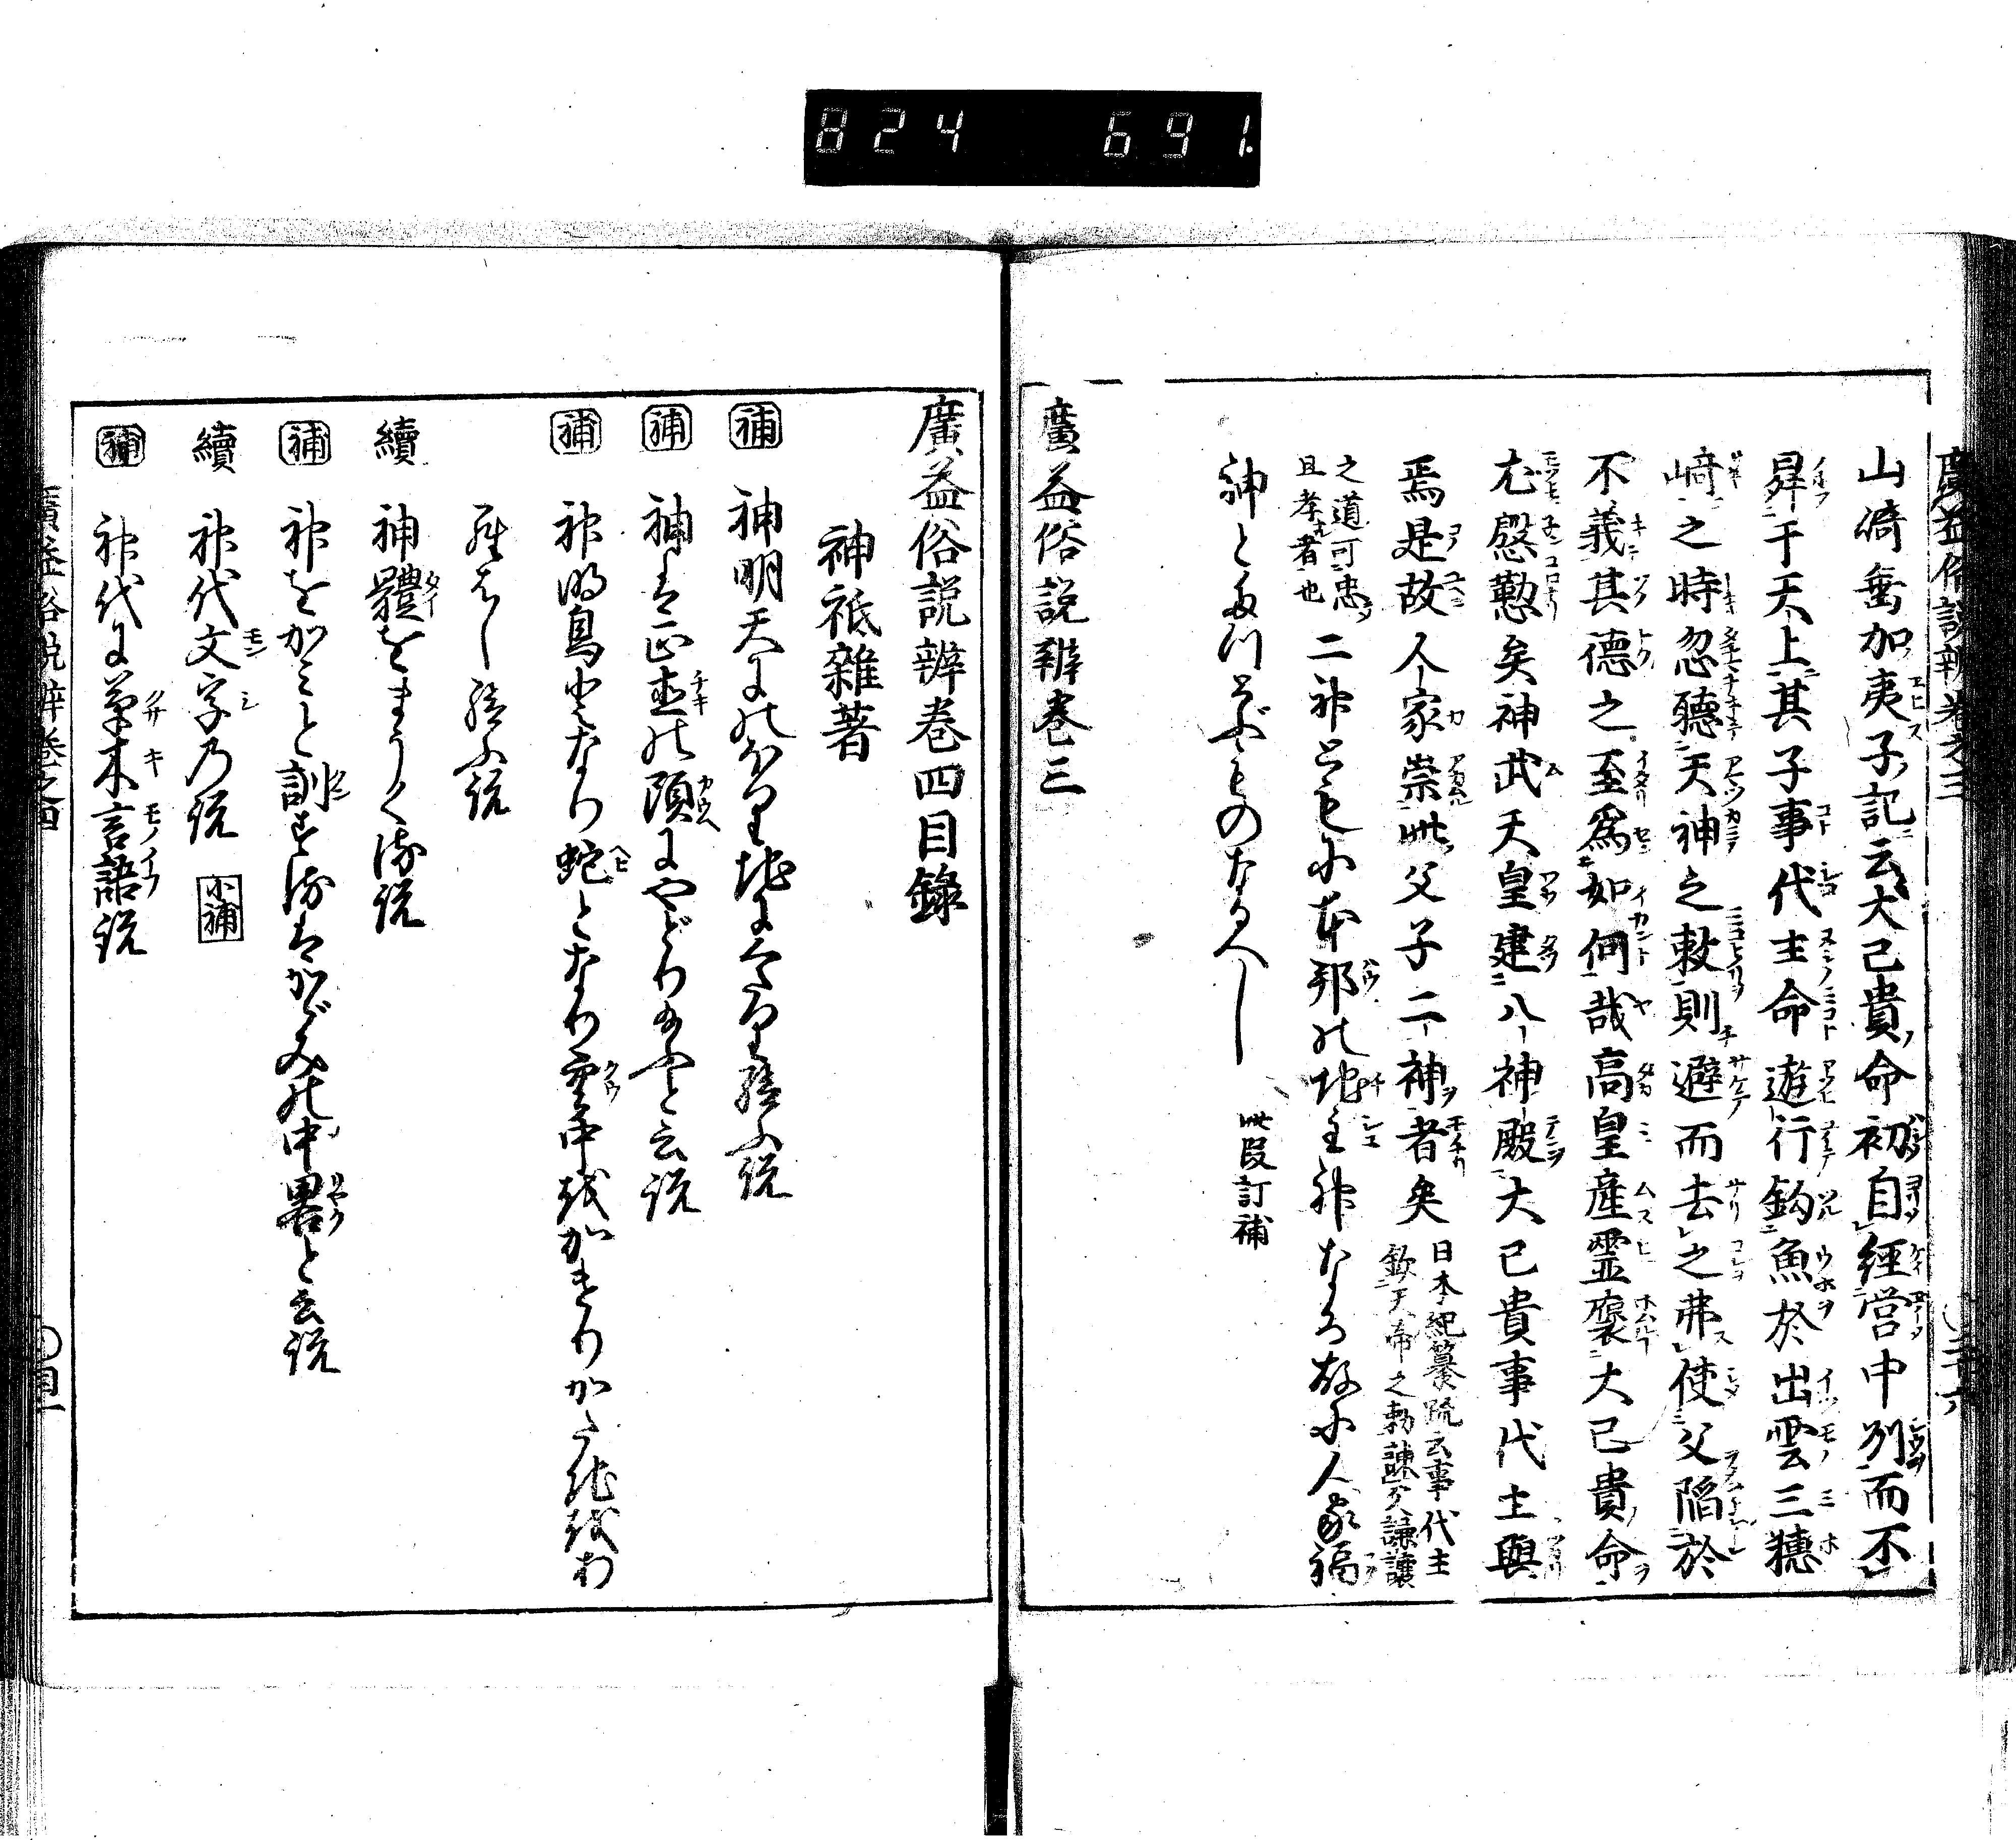 824 691.
山﨑垂加夷子記云大己貴命初自經营中列而不
昇于天上其子事代主命遊行釣魚於出雲三穗
﨑之時忽聽天神之敕則避而去之弗使父陷於
不義其德之至為如何哉高皇産霊褒大己貴命
尤慇懃矣神武天皇建八神殿大己貴事代主與
焉是故人家崇此父子二神者矣日本紀纂疏云事代主
欽天帝之勅諫父謙讓
之道可忠
且孝者也
二神ともに本邦の地主神なる故に人家福
神とまつるものなるへし 此段訂補
廣益俗説辨巻三
廣益俗説辨巻四目錄
神祇雜著
補 神明天にのほり地にくたり給ふ説
補 神は正直の頭にやどり給ふと云説
補 神鳥となり蛇となり雲中或かきりかたち或わ
給ふ説
續 神體をまうくる説
補 神をかミと訓する はかゞみの中畧と云説
續 神代文字乃説 小補
補 神代に草木言語説
廣益俗説辨巻之四